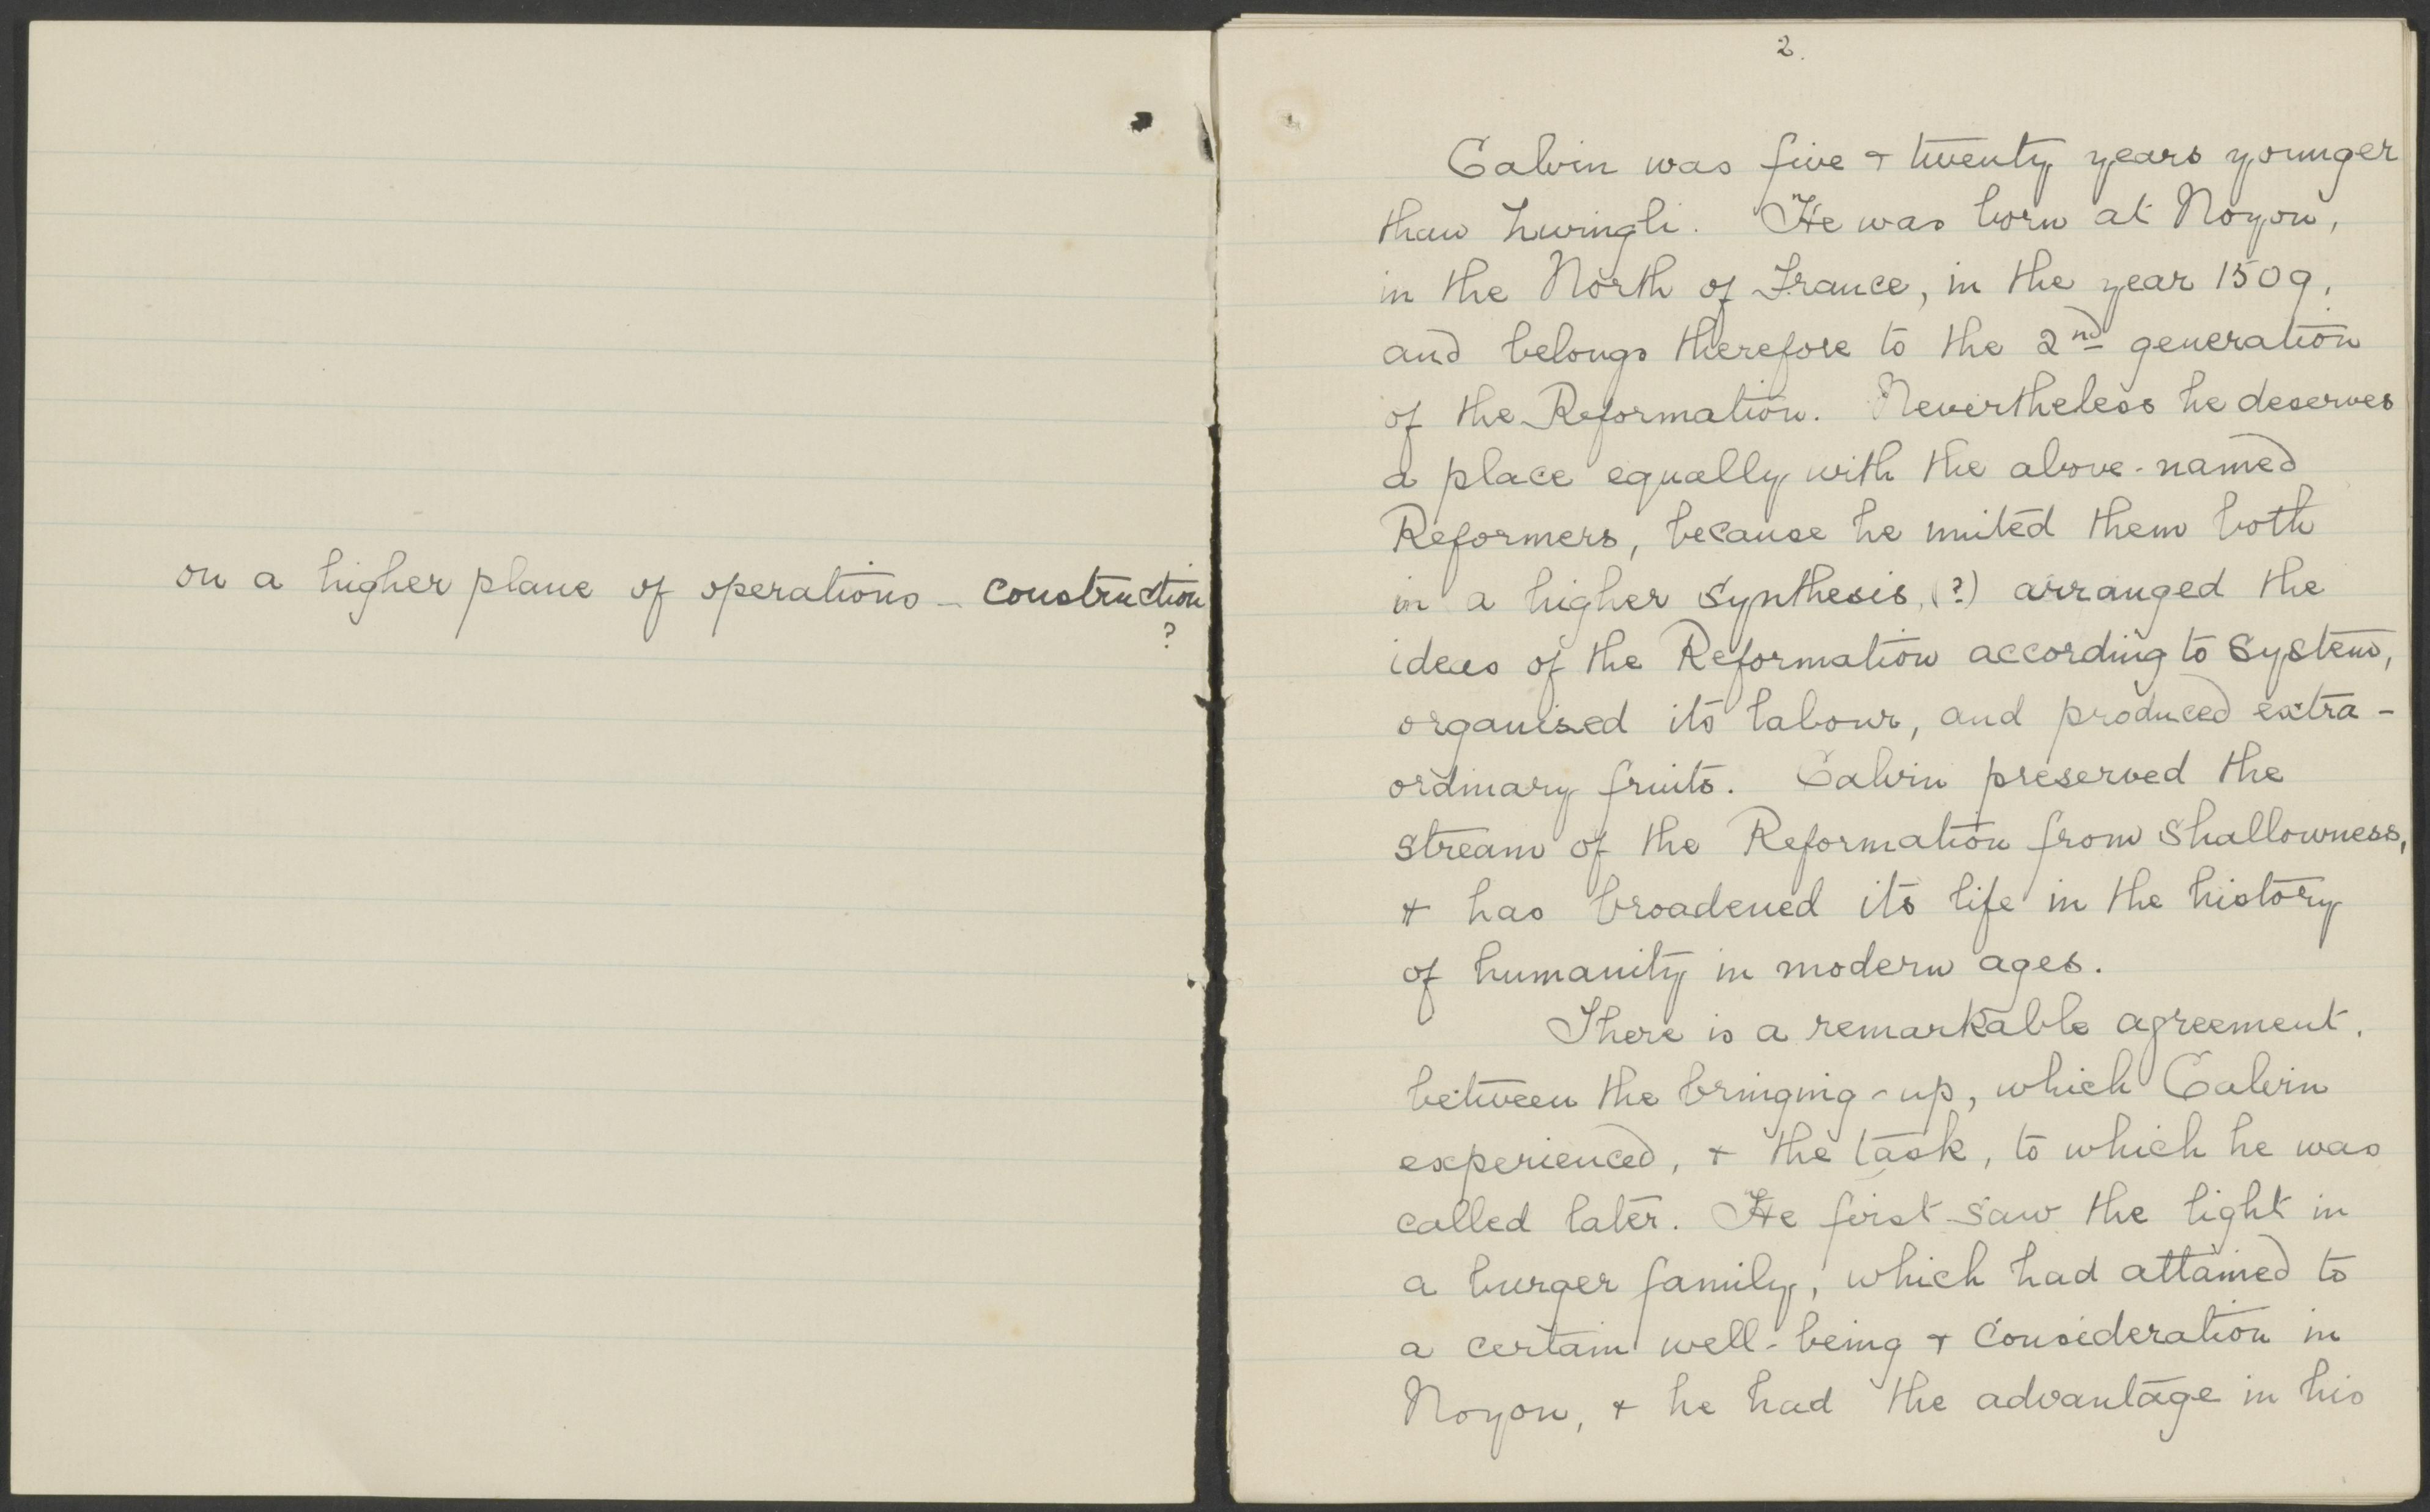 on a higher plane of operations - construction
?
2.
Calvin was five & twenty years younger
than Zwingli. He was born at Noyon,
in the North of France, in the year 1509,
and belongs therefore to the 2nd generation
of the Reformation. Nevertheless he deserves
a place equally with the above-named
Reformers, because he united them both
in a higher synthesis, (?) arranged the
ideas of the Reformation according to system,
organised its labour, and produced extra-
ordinary fruits. Calvin preserved the
stream of the Reformation from shallowness,
& has broadened its life in the history
of humanity in modern ages.
There is a remarkable agreement.
between the bringing-up, which Calvin
experienced, & the task, to which he was
called later. He first saw the light in
a burger family, which had attained to
a certain well-being & consideration in
Noyon, & he had the advantage in his